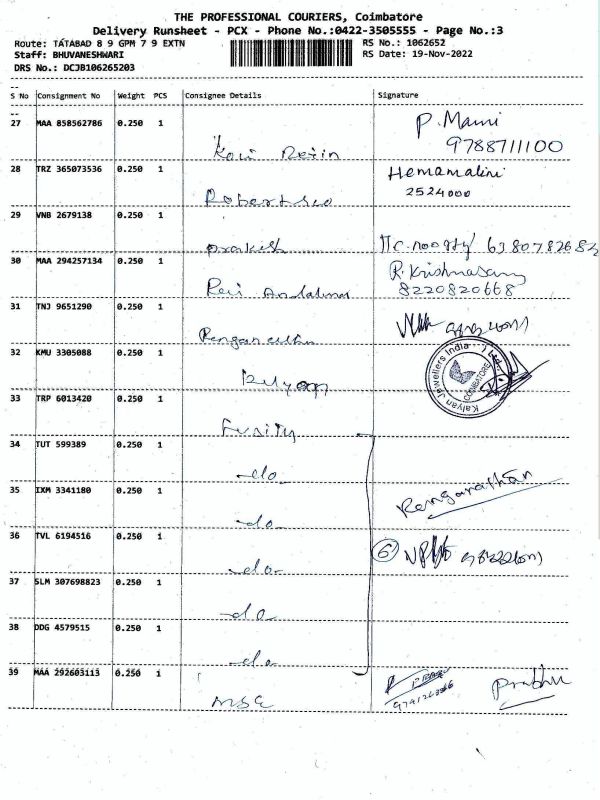 THE PROFESSIONAL COURIERS, Coimbatore
Delivery Runsheet - PCX - Phone No.:0422-3505555 - Page No.:3
Route: TATABAD 8 9 GPM 7 9 EXTN
RS No.: 1062652
Staff: BHUVANESHWARI
RS Date: 19-Nov-2022
DRS No.: DCJB106265203
--
S No Consignment No Weight PCS Consignee Details Signature
--
27 MAA 858562786 0.250 1 P. Mani
9788711100
28 TRZ 365073536 0.250 1 Hemamalini
2524000
29 VNB 2679138 0.250 1
Prakash 6380782682
30 MAA 294257134 0.250 1 R. Krishnasamy
8220820668
31 TNJ 9651290 0.250 1
32 KMU 3305088 0.250 1
Kalyan Jewellers India Ltd.,
COIMBATORE
Kalyan
33 TRP 6013420 0.250 1
34 TUT 599389 0.250 1
-do-
35 IXM 3341180 0.250 1 Renganathan
-do-
36 TVL 6194516 0.250 1 6
-do-
37 SLM 307698823 0.250 1
-do-
38 DDG 4579515 0.250 1
-do-
39 MAA 292603113 0.250 1 Prabhu